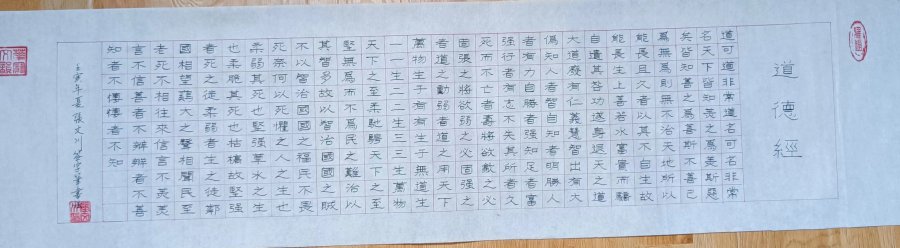 道德經
道可道非常道名可名非常
名天下皆知美之爲美斯惡
矣皆知善之爲善斯不善已
爲無爲則無不治天地所以
能長且久者以其不自生故
能長生上善若水富貴而驕
自遺其咎功遂身退天之道
大道廢有仁義慧智出有大
僞知人者智自知者明勝人
者有力自勝者強知足者富
強行者有志不失其所者久
死而不亡者壽將欲歙之必
固張之將欲弱之必固強之
者道之動弱者道之用天下
萬物生于有有生于無道生
一一生二二生三三生萬物
天下之至柔馳騁天下之至
堅無爲而不爲民之難治以
其智多故以智治國國之賊
不以智治國國之福民不畏
死奈何以死懼之人之生也
柔弱其死也堅強草木之生
也柔脆其死也枯槁故堅強
者死之徒柔弱者生之徒鄰
國相望雞犬之聲相聞民至
老死不相往來信言不美美
言不信善者不辯辯者不善
知者不博博者不知
壬寅年夏張文川